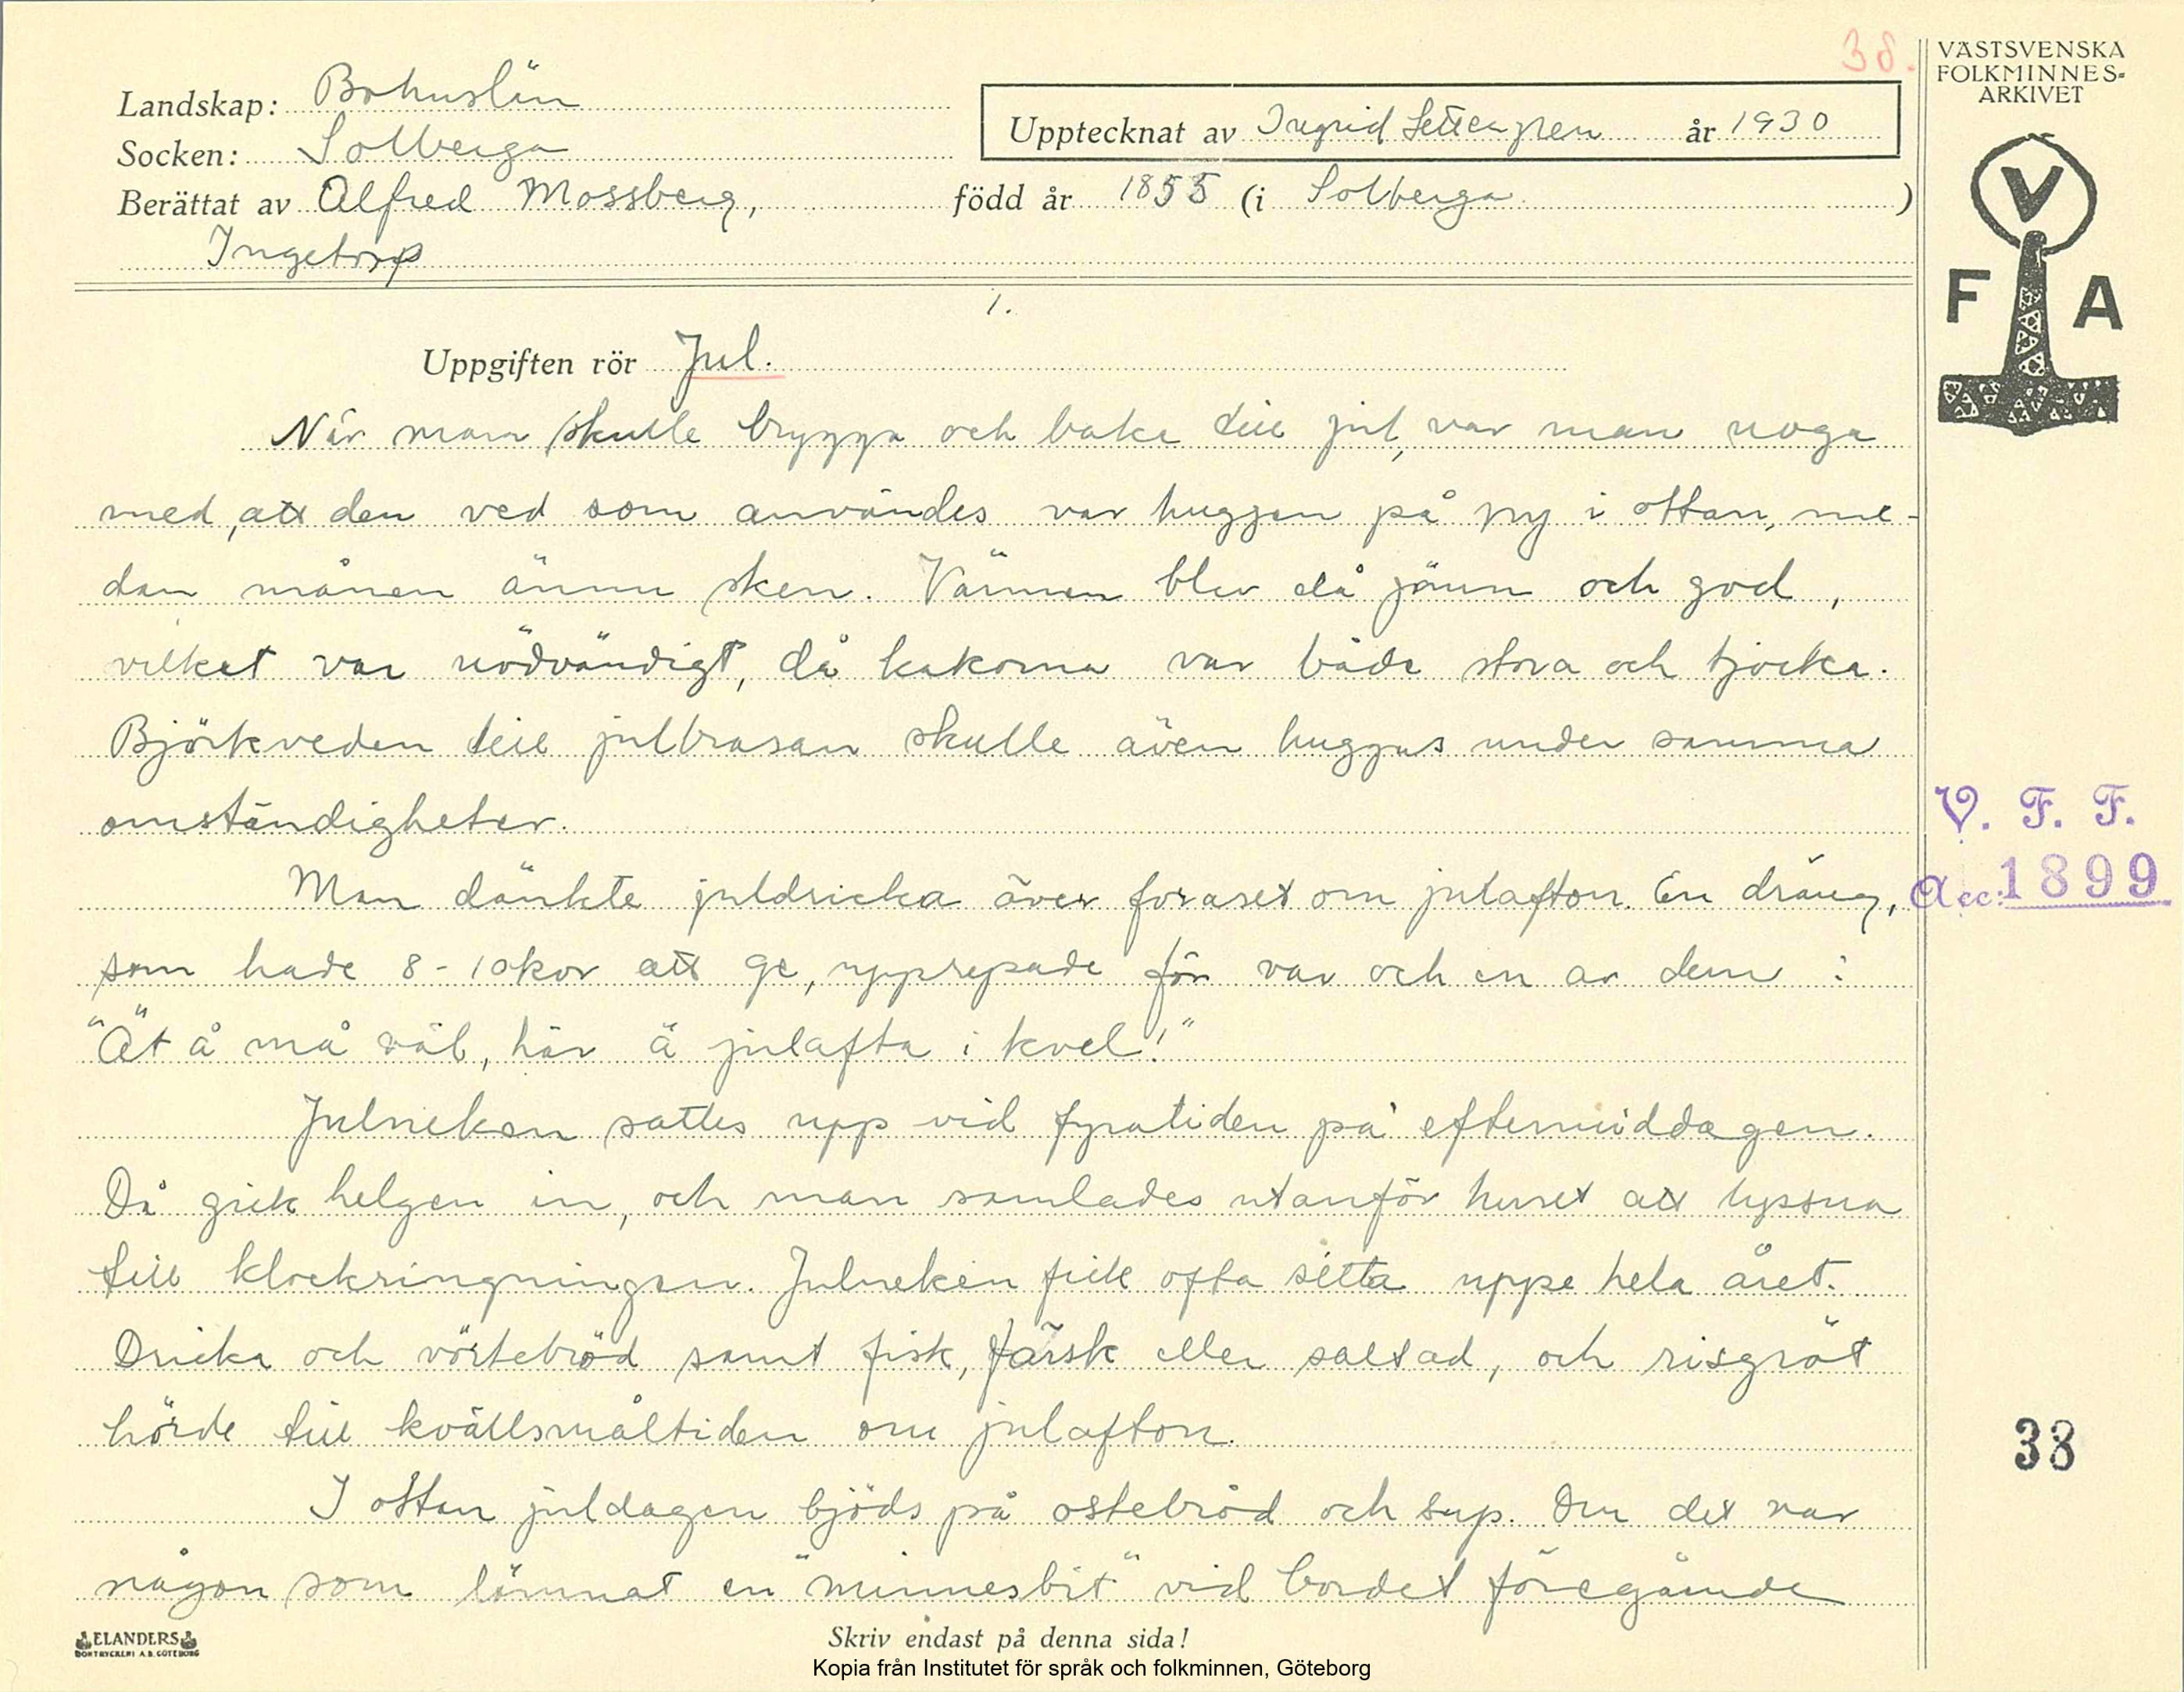 38.
VÄSTSVENSKA
FOLKMINNES-
ARKIVET
Landskap: Bohuslän
Upptecknat av Ingrid Settergren år 1930
Socken: Solberga
Berättat av Alfred Mossberg, född år 1855 (i Solberga)
Ingetorp
V
F A
1.
Uppgiften rör Jul.
När man skulle brygga och baka till jul, var man noga
med, att den ved som användes var huggen på ny i ottan, me-
dan månen ännu sken. Värmen blev då jämn och god,
vilket var nödvändigt, då kakorna var både stora och tjocka.
Björkveden till julbrasan skulle även huggas under samma
omständigheter.
V. F. F.
Man dänkte juldricka över foraset om julafton. En dräng,
Acc. 1899
som hade 8-10 kor att ge, upprepade för var och en av dem:
"Ät å må väl, här ä julafta i kvel!"
Julneken sattes upp vid fyratiden på eftermiddagen.
Då gick helgen in, och man samlades utanför huset att lyssna
till klockringningen. Julneken fick ofta sitta uppe hela året.
Dricka och vörtebröd samt fisk, färsk eller saltad, och risgröt
hörde till kvällsmåltiden om julafton.
38
I ottan juldagen bjöds på ostebröd och sup. Om det var
någon som lämnat en "minnesbit" vid bordet föregående
ELANDERS
BOKTRYCKERI A.B. GÖTEBORG
Skriv endast på denna sida!
Kopia från Institutet för språk och folkminnen, Göteborg